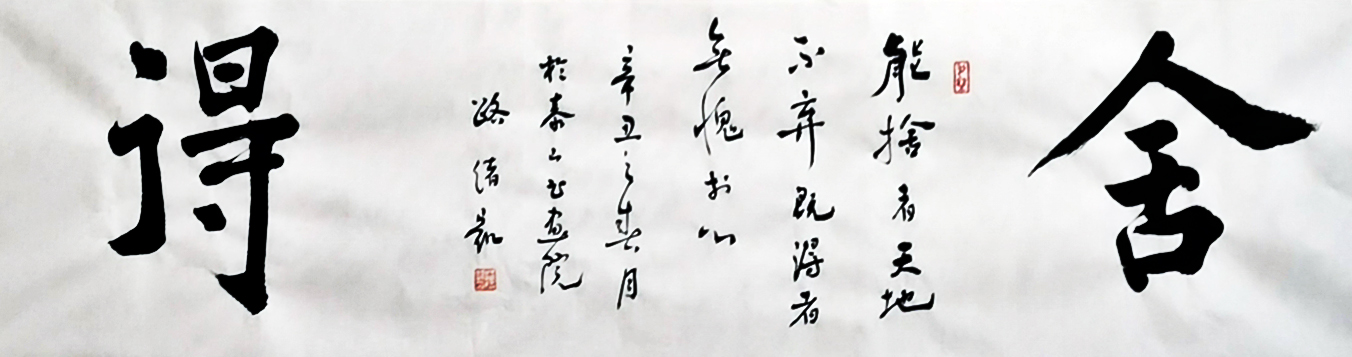 舍
能捨者天地
不弃既得者
無愧於心
辛丑之春月
於泰山书画院
路
得